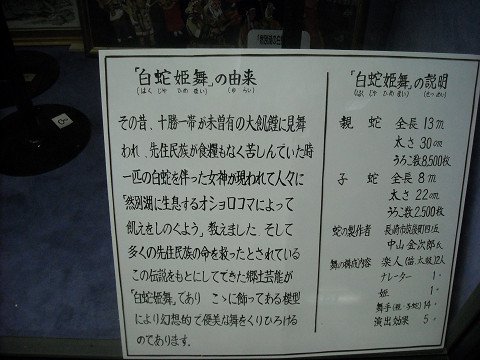 「白蛇姫舞」の由来
(はくじゃひめまい) (ゆらい)
その昔、十勝一帯が未曽有の大飢饉に見舞
われ、先住民族が食糧もなく苦しんでいた時
一匹の白蛇を伴った女神が現われて人々に
「然別湖に生息するオショロコマによって
飢えをしのぐよう」教えました。そして
多くの先住民族の命を救ったとされている
この伝説をもとにしてできた郷土芸能が
「白蛇姫舞」であり こゝに飾ってある模型
により幻想的で優美な舞をくりひろげる
のであります。
「白蛇姫舞」の説明
(はくじゃひめまい) (せつめい)
親蛇 全長13m
太さ30cm
うろこ数8,500枚
子蛇 全長8m
太さ22cm
うろこ数2,500枚
蛇の製作者 長崎市
中山金次郎氏
舞の構成内容 楽人(笛、太鼓)12人
ナレーター 1〃
姫 1〃
舞手(親・子蛇)14〃
演出効果 5〃